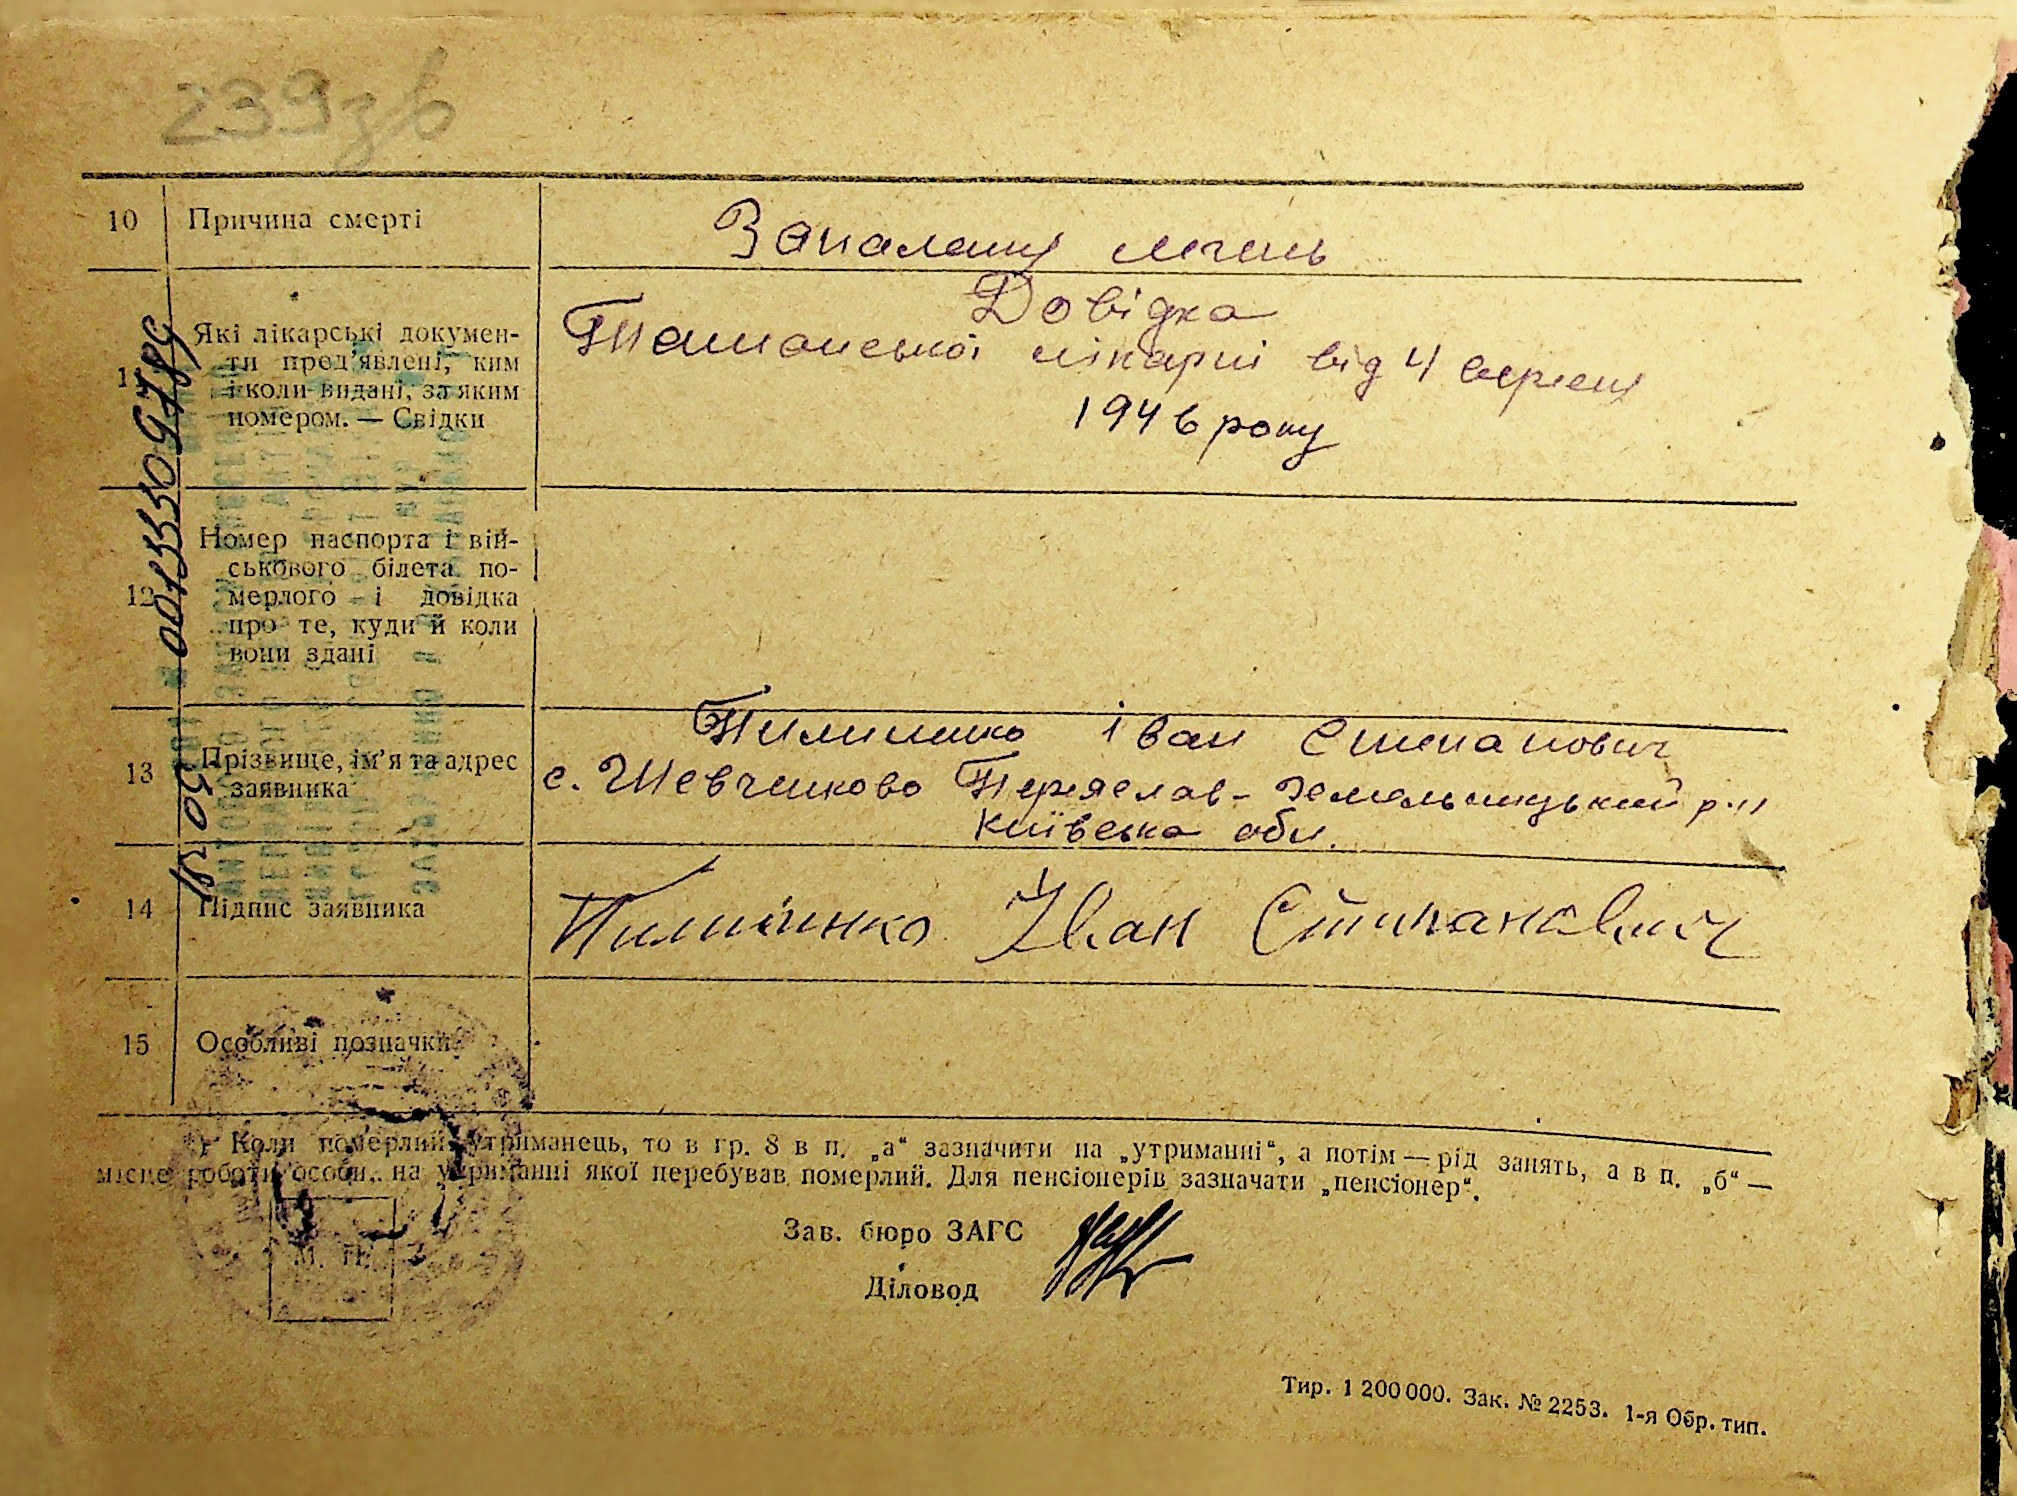 239зв
10 Причина смерті
Запаленя легень
Які лікарські докумен-
ти пред'явлені, ким
і коли видані, за яким
номером. — Свідки
Довідка
Ташанської лікарні від 4 вересня
1946 року
12 Номер паспорта і вій-
ськового білета по-
мерлого і довідка
про те, куди й коли
вони здані
13 Прізвище, ім'я та адрес
заявника
Пилипенко Іван Степанович
с. Шевченково Переяслав-Хмельницький р-н
Київська обл.
14 Підпис заявника
Іван
15 Особливі позначки
Коли померлий утриманець, то в гр. 8 в п. „а“ зазначити на „утриманні“, а потім — рід занять, а в п. „б“ —
місце роботи особи, на утриманні якої перебував померлий. Для пенсіонерів зазначати „пенсіонер“.
Зав. бюро ЗАГС
М. П.
Діловод
Тир. 1 200 000. Зак. № 2253. 1-я Обр. тип.